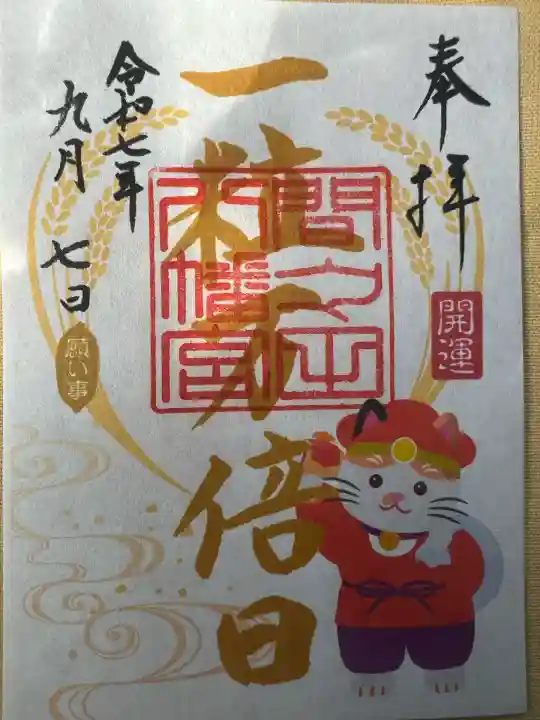 奉拝
開運
一粒万倍日
間々田
八幡宮
令和七年
九月 七日
願い事